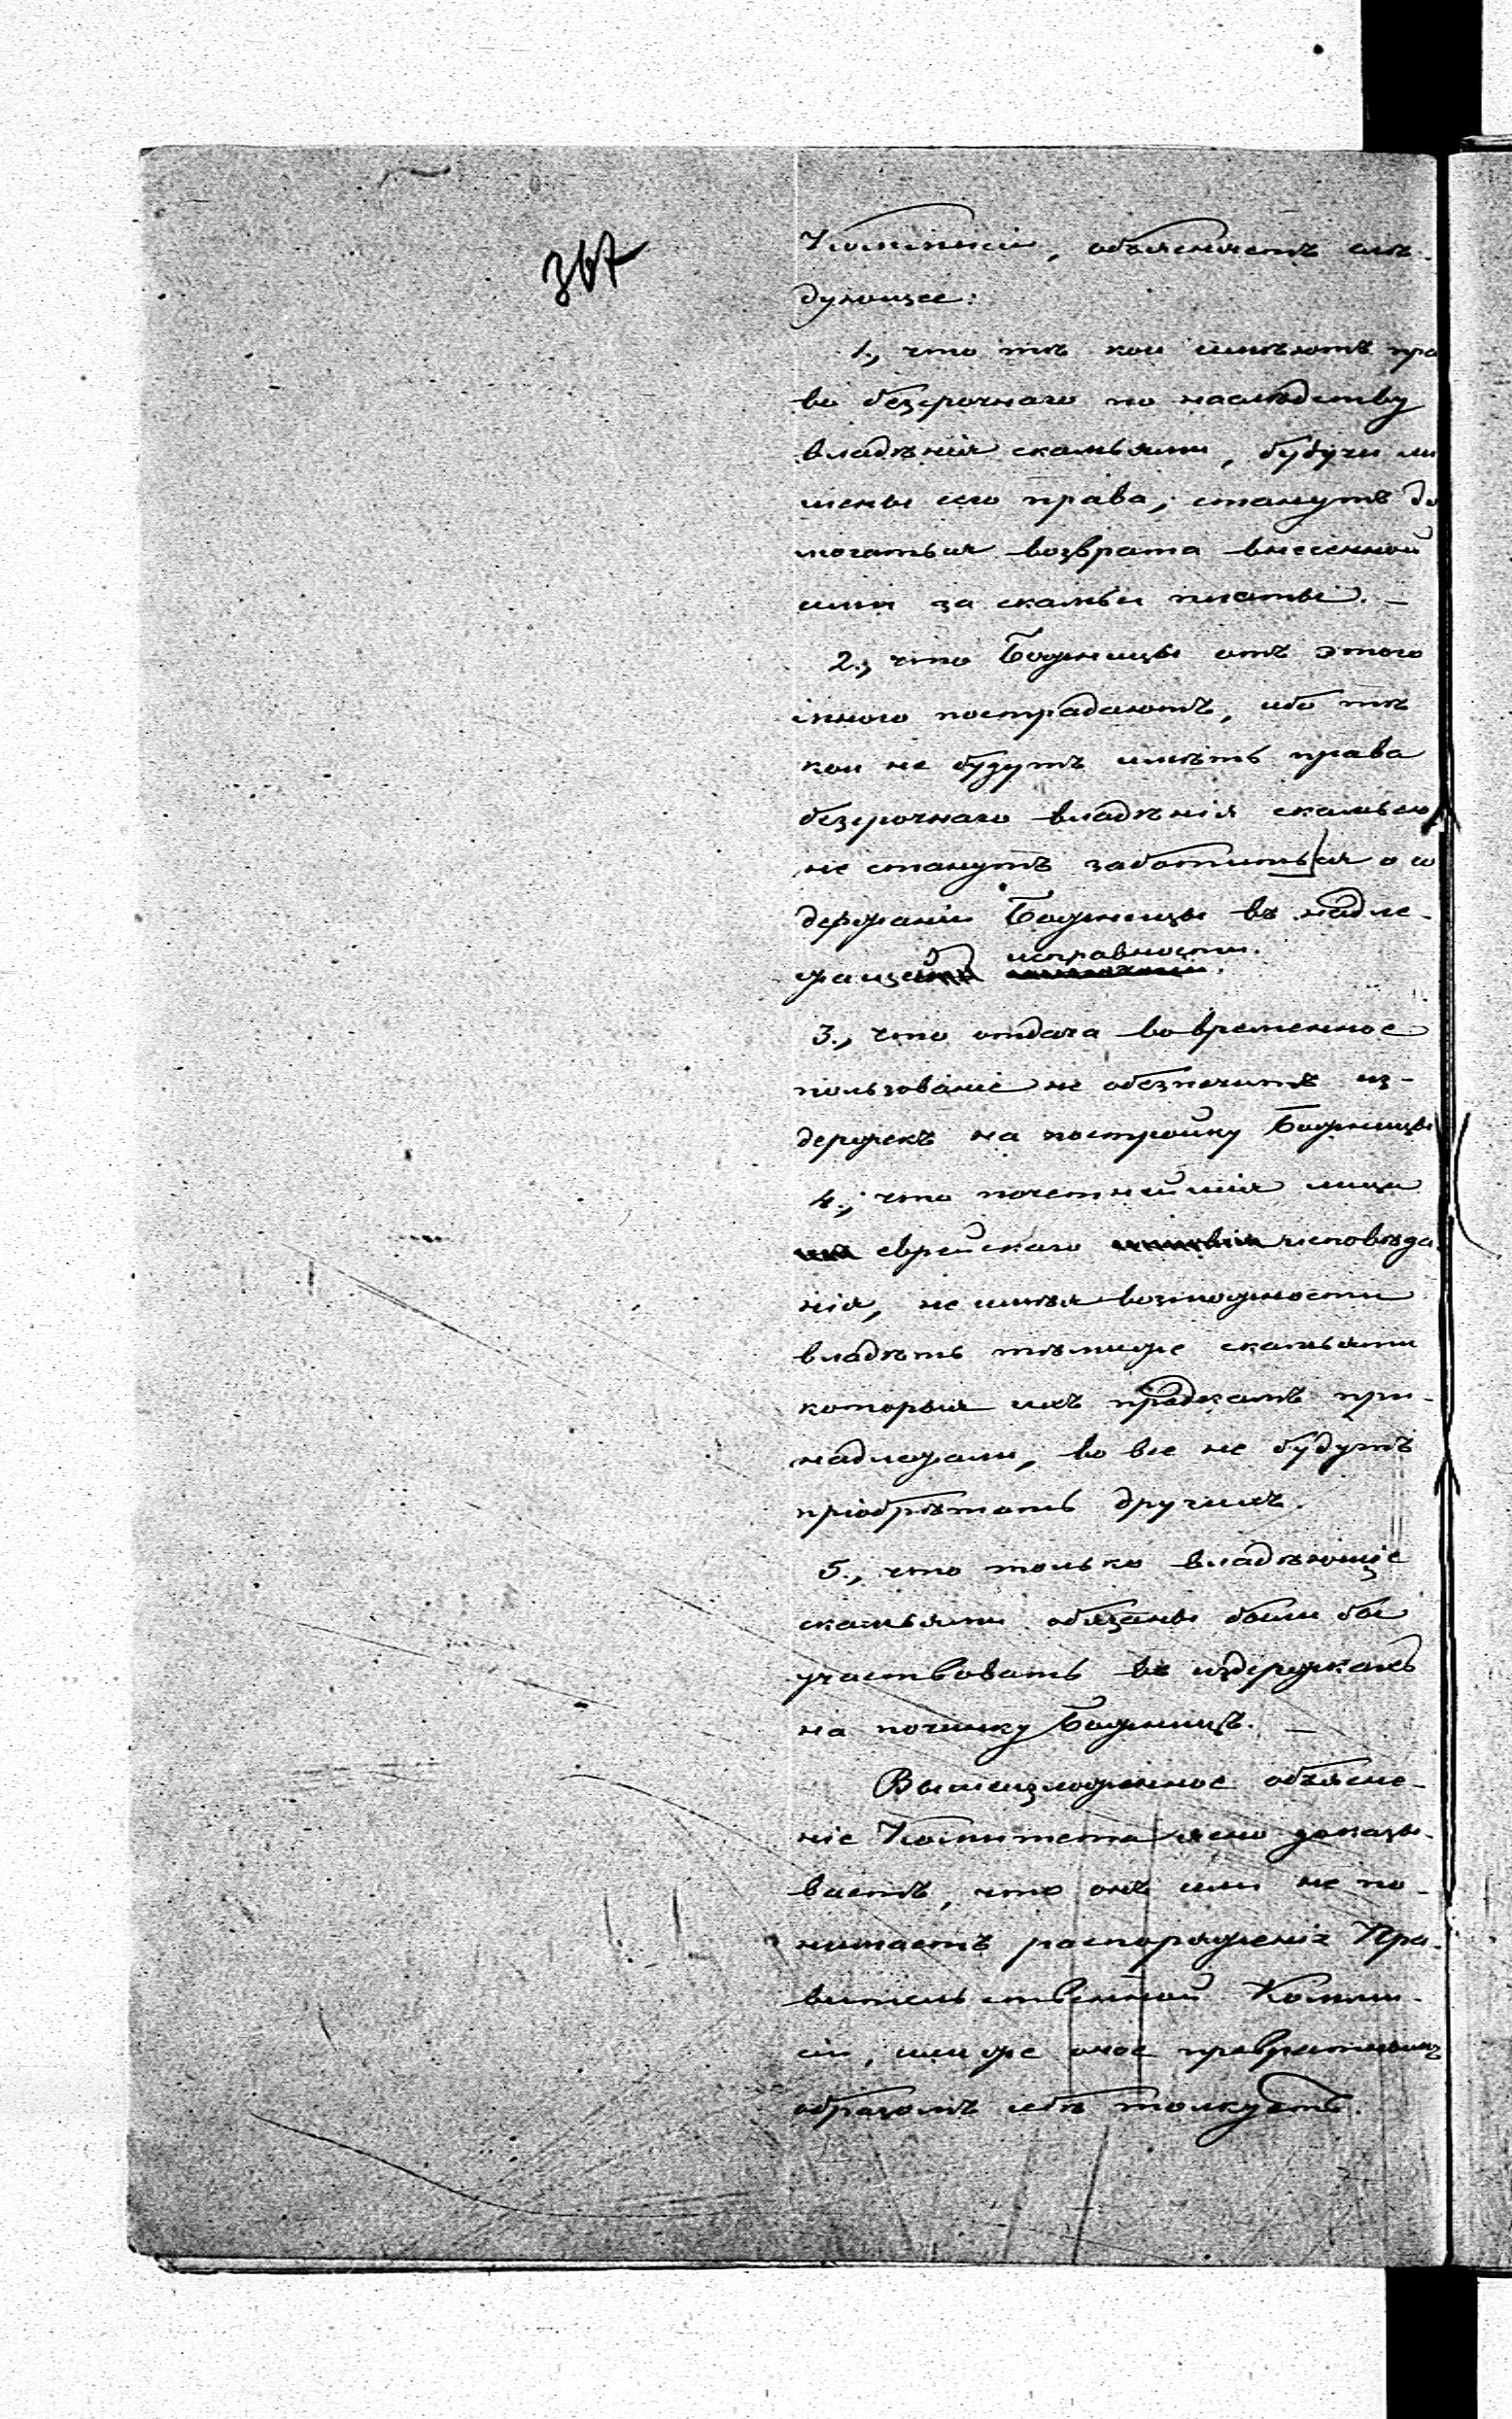 367
Коммисіи, объясняетъ слѣ-
дующее:
1., что тѣ кои имѣютъ пра
во безсрочнаго по наслѣдству
владѣнія скамьями, будучи ли
шены сего права, станутъ до
могаться возврата внесенной
ими за скамьи платы. —
2., что Божницы отъ этого
много пострадаютъ, ибо тѣ
кои не будутъ имѣть права
безсрочнаго владѣнія скамьею
не станутъ заботиться о со
держаніи Божницы въ надле-
жащей исправности.
3., что отдача во временное
пользованіе не обезпечитъ из-
держекъ на постройку Божницы
4., что почетнѣйшія лица
еврейскаго исповѣда
нія, не имѣя возможности
владѣть тѣмиже скамьями
которыя ихъ предкамъ при-
надлежали, во все не будутъ
пріобрѣтать другихъ.
5., что только владѣющіе
скамьями обязаны были бы
участвовать въ издержкахъ
на починку Божницъ. —
Вышеизложенное объясне-
ніе Комитета ясно доказы-
ваетъ, что онъ или не по-
нимаетъ распоряженія Пра-
вительственной Комми-
сіи, или же оное превратнымъ
образомъ себѣ толкуетъ.